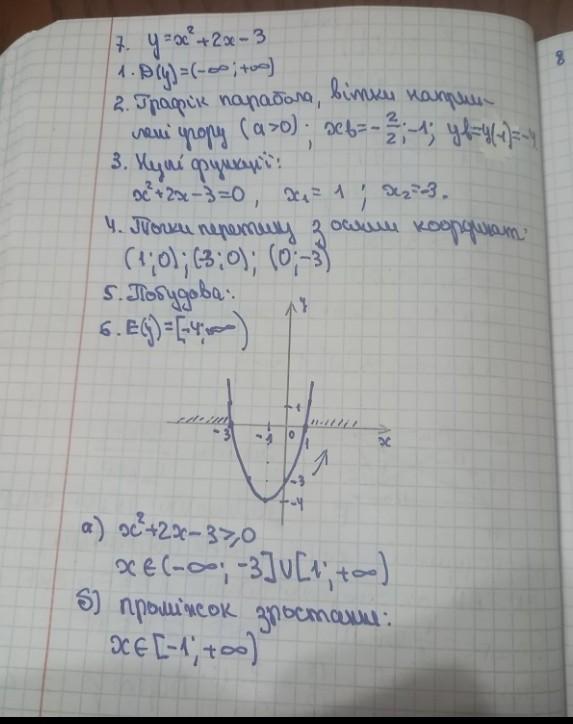 7. y=x²+2x-3
1. D(y)=(-∞;+∞)
2. Графік парабола, вітки напрям-
лені угору (a>0); xв=-2/2;-1; yв=y(-1)=-4
3. Нулі функції:
x²+2x-3=0, x₁=1; x₂=-3.
4. Точки перетину з осями координат:
(1;0);(-3;0); (0;-3)
5. Побудова:
6. E(y)=[-4;∞)
y
1
-3 -1 0 1 x
-3
-4
а) x²+2x-3⩾0
x∈(-∞;-3]∪[1;+∞)
б) проміжок зростання:
x∈[-1;+∞)
8